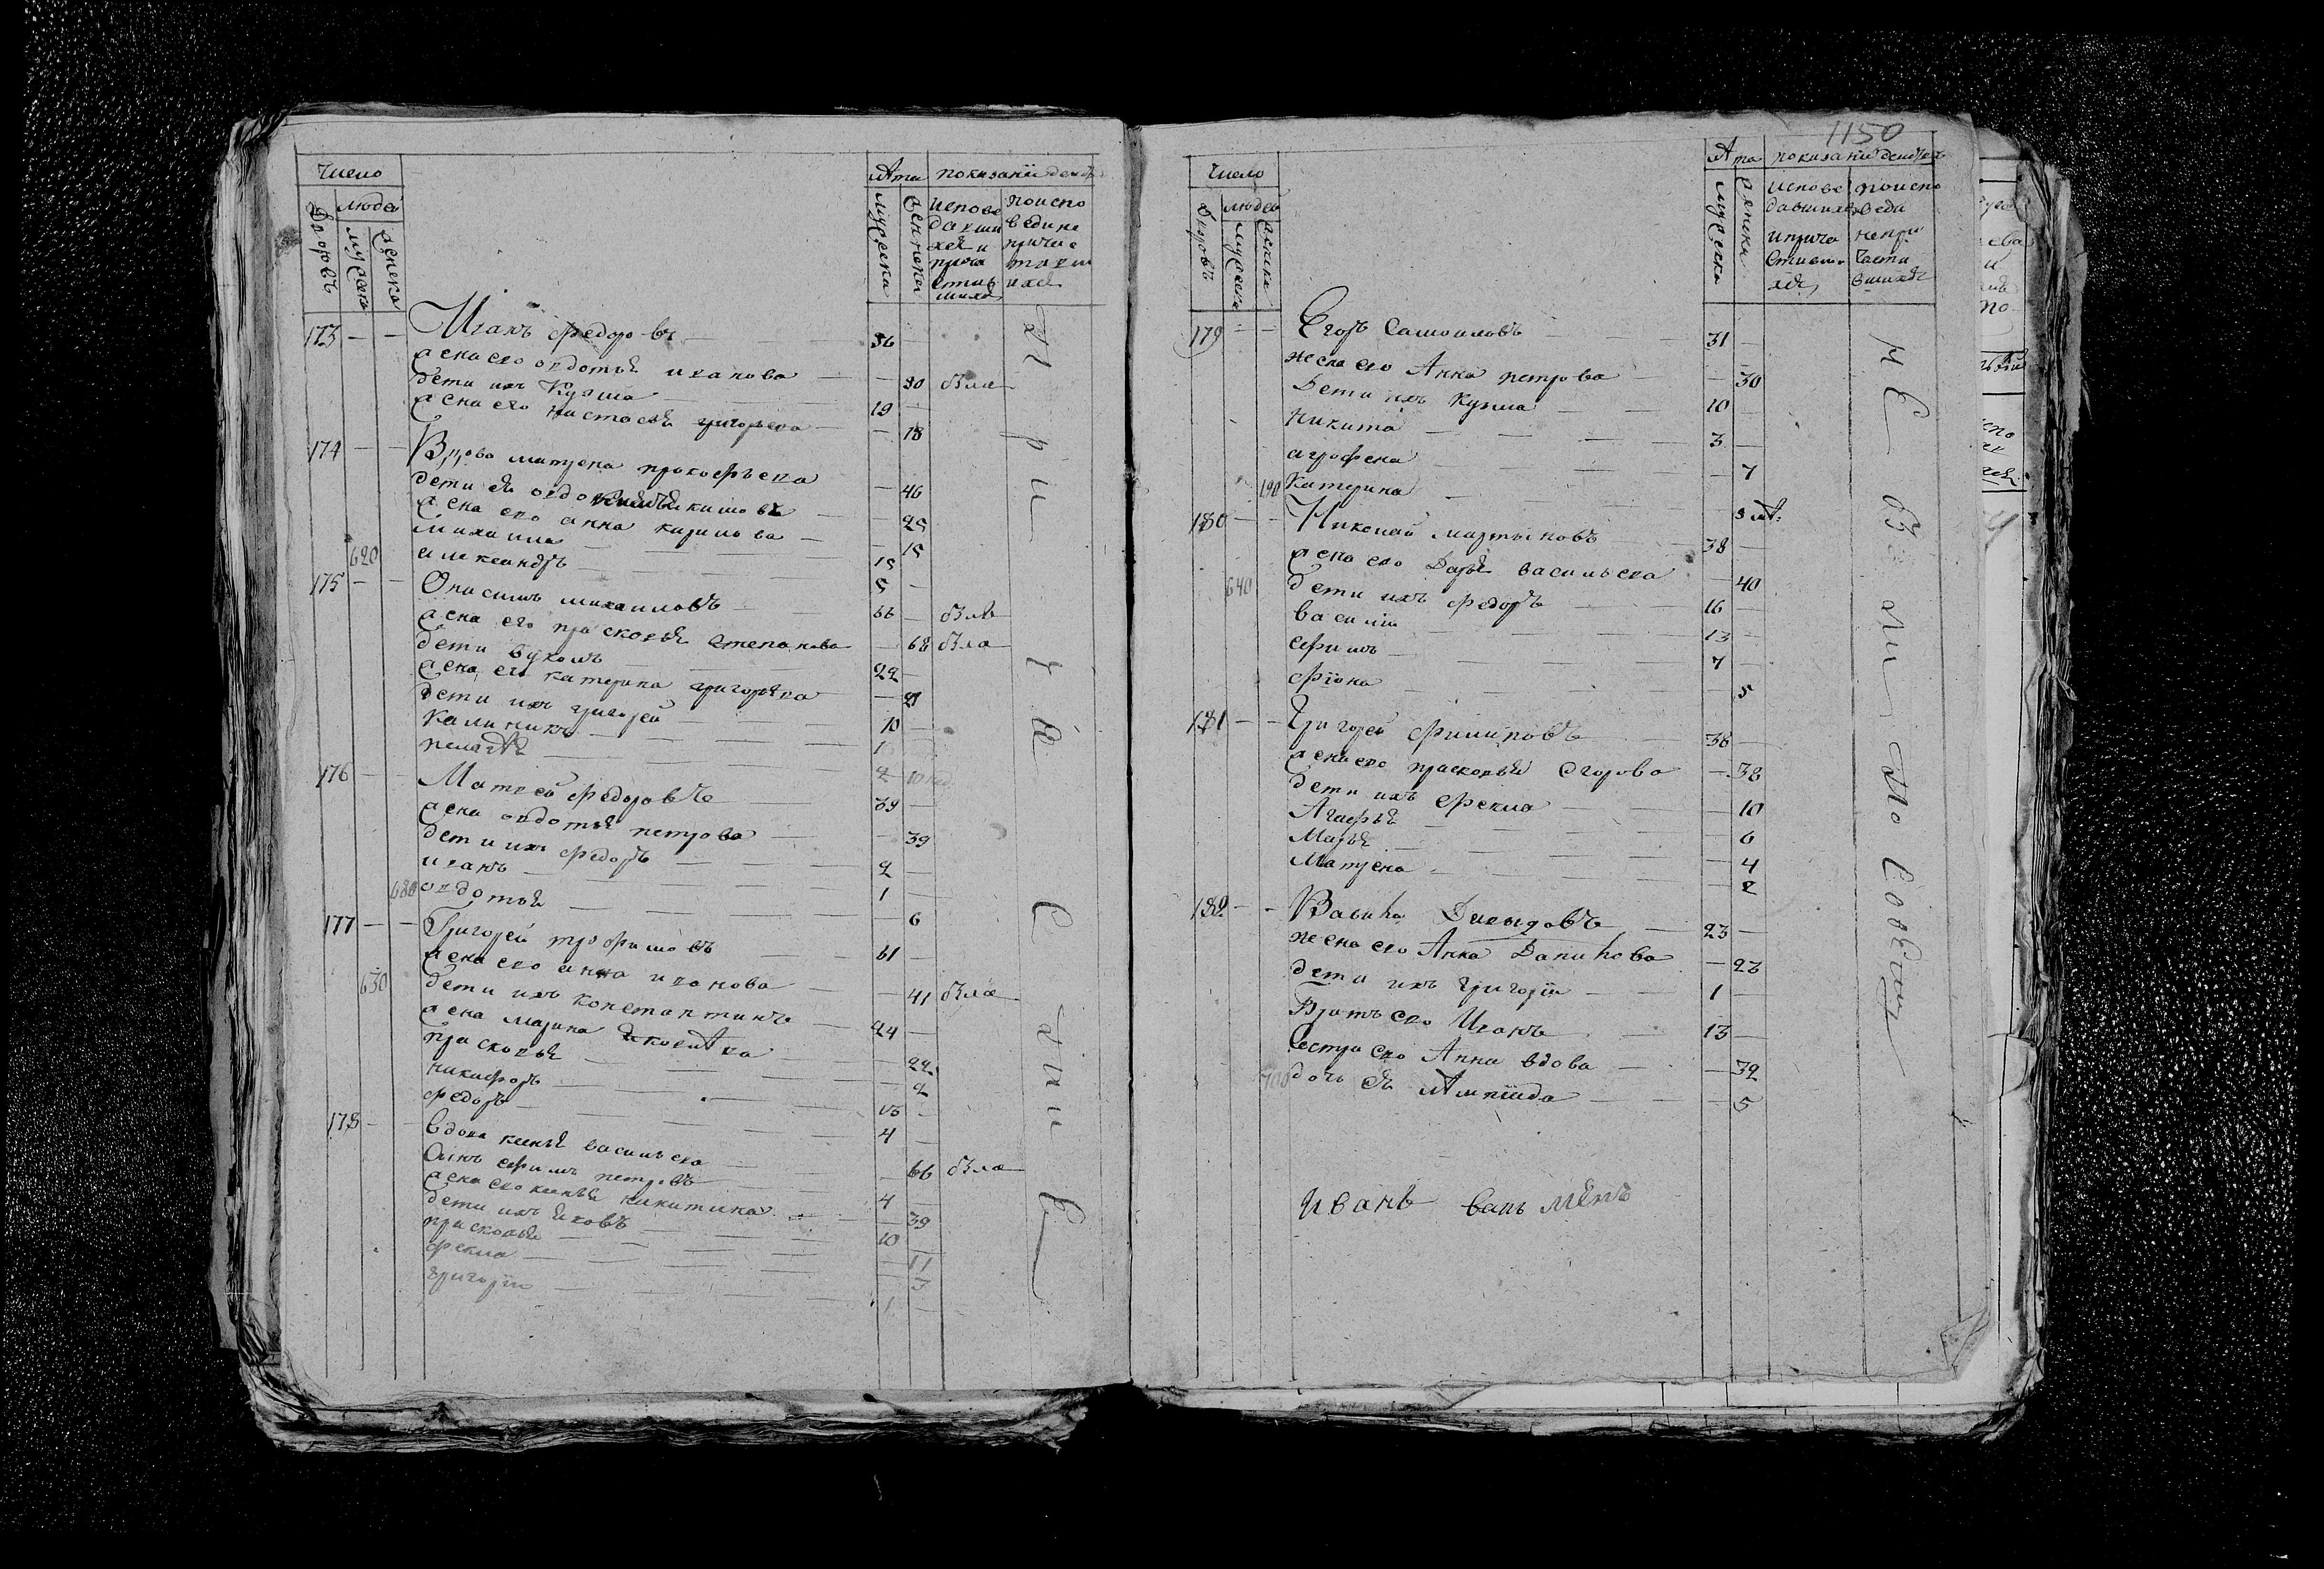 Число
людей
Дворовъ
мужеска
женска
Лѣта
мужеска
женска
показанiи действ
испове
давши
хся и
прича
стив
шихся
по испо
веди не
причас
тивш
ихся
173 — — Иванъ Федоровъ — 36 —
жена его овдотья иванова — — 30 была
дети ихъ Кузма — 19 —
жена его настасья григорьева — — 18
174 — — Вдова матрена прокофьева — 46
дети ея овдокимъ екимовъ — 25
жена его анна карпова — — 15
михаила — 15
620 александръ — 5 —
175 — — Онисимъ михаиловъ 66 — былъ
жена его прасковья степанова — 68 была
дети вуколъ — 22 —
жена его катерина григорьева — 21
дети их григорей — 10 —
калиникъ —
пелагѣя — 2
176 — — Матвей федоровъ 39 —
жена овдотья петрова — — 39
дети ихъ федоръ — 2 —
иванъ — 1 —
680 овдотья — 6
177 — — Григорей трофимовъ — 61 —
жена его анна иванова — — 41 была
630 дети ихъ константинъ — 24 —
жена марина яковлѣва — 22
прасковья — 2
никифоръ —
федоръ — 4 —
178 — — вдова ксенья васильева — 66 была
Сынъ ефимъ петровъ 4
жена его ксенья никитина — 39
дети ихъ яковъ — 10
прасковья — 11
фекла — 3
григорiи — 1 —
При ча с тил и с
1150
Число
людей
Дворовъ
мужеска
женска
Лѣта
мужеска
женска
показанiи действъ
испове
давшихъ
и прича
стивши
хся
по испо
веди
непри
части
вшихся
179 — — Егоръ Самоиловъ — 31 —
жена его Анна петрова — — 30
Дети ихъ кузма — 10 —
никита — 3 —
агрофена — 7
190 Катерина — 3 лѣ.
180 — — Николай мартыновъ — 38 —
жена его Дарья васильева — 40
640 дети ихъ федоръ — 16 —
василiи — 13 —
ефимъ — 7 —
фiона — 5
181 — — Григорей филиповъ — 38 —
жена его прасковья егорова — 38
дети ихъ фекла — 10
Агафья — 6
Марья — 4
Матрена — 2
182 — — Васила Давыдовъ — 23 —
жена его Анна Данилова — 23
дети ихъ григорiи — 1 —
Братъ его Иванъ — 13 —
сестра его Анна вдова — — 32
700 дочь ея — 5
не бы ли по Совѣту
Иванъ